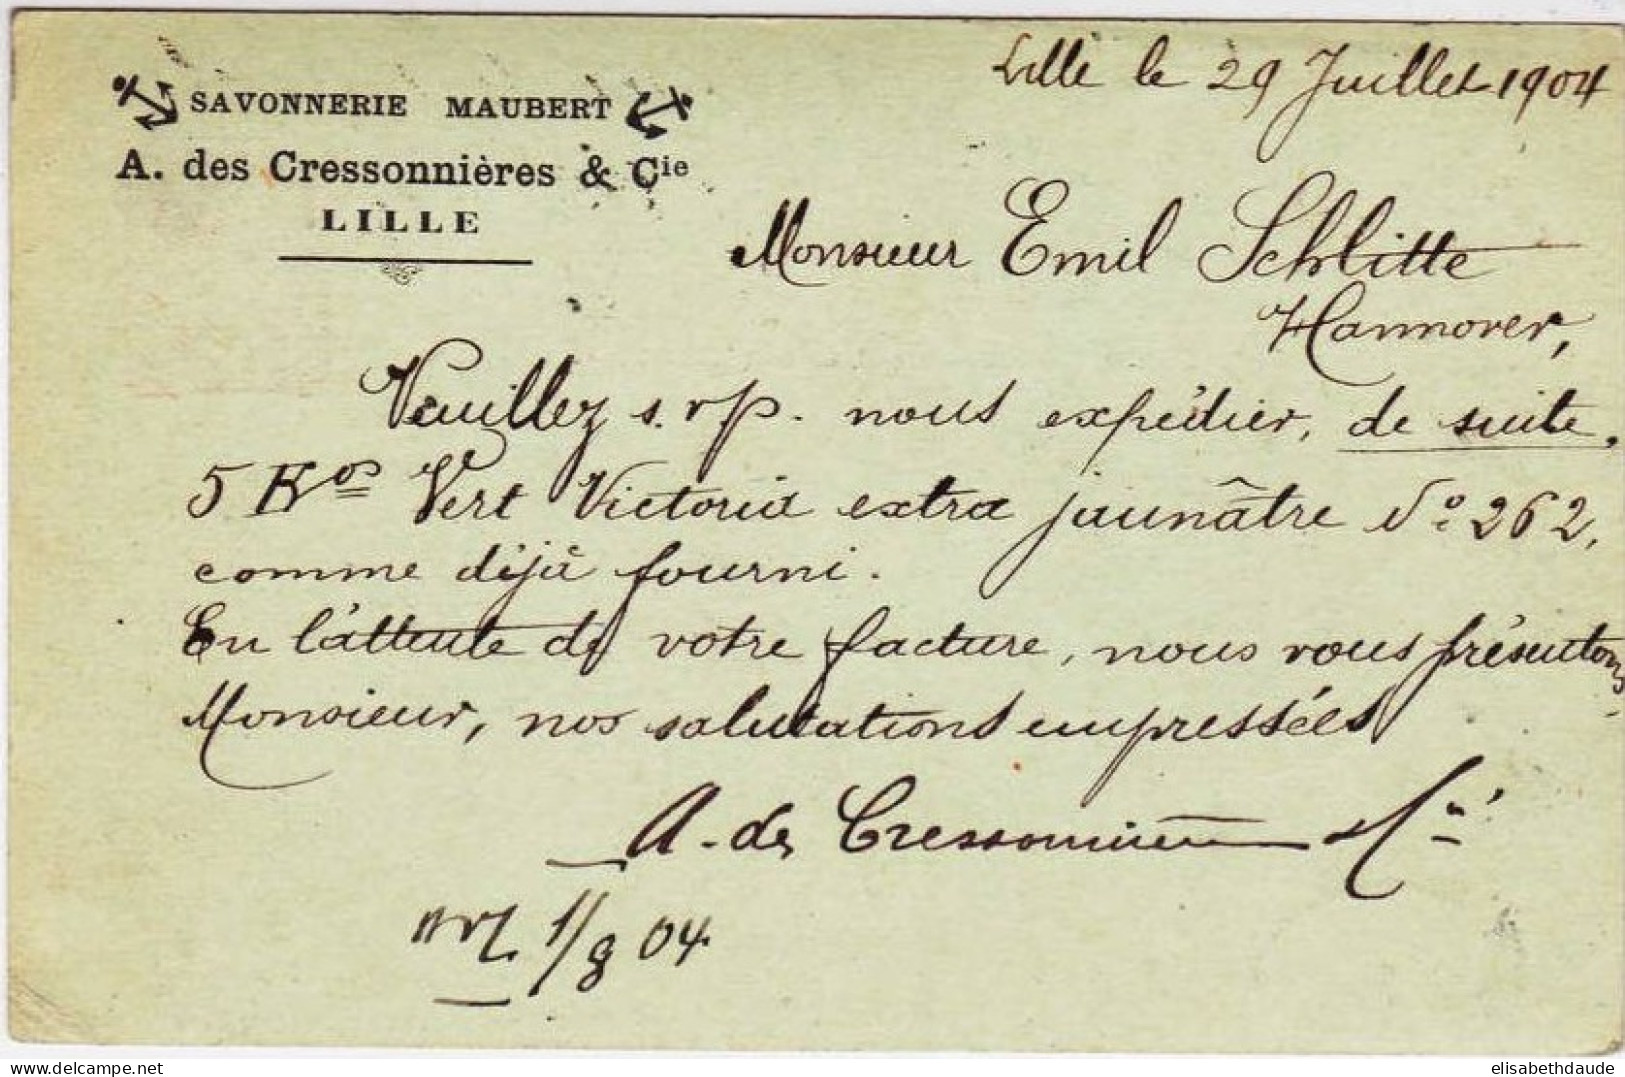 Lille le 29 Juillet 1904
SAVONNERIE MAUBERT
A. des Cressonnières & Cie
LILLE
Monsieur Emil Schlitte
Hannover,
Veuillez s.v.p. nous expédier, de suite,
5 Kos Vert Victoria extra jaunâtre No 262,
comme déjà fourni.
En l'attente de votre facture, nous vous présentons,
Monsieur, nos salutations empressées
A. des Cressonnières & Cie
1/8 04.
delcampe.net
elisabethdaude